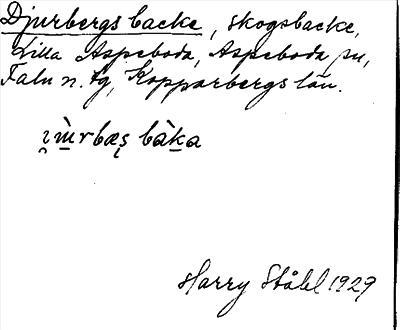 Djurbergsbacke, skogsbacke,
Lilla Aspeboda, Aspeboda sn,
Falu n. tg, Kopparbergs län.
i̯ɯ̀rbæs̨ bàka
Harry Ståhl 1929